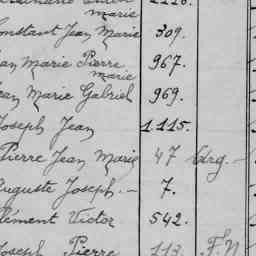 marie
Constant Jean Marie 309.
Jean Marie Pierre 967.
marie
Jean Marie Gabriel 969.
Joseph Jean 1.115.
Pierre Jean Marie 47
Auguste Joseph. — 7.
Clément Victor 542.
Joseph Pierre 113. F.N